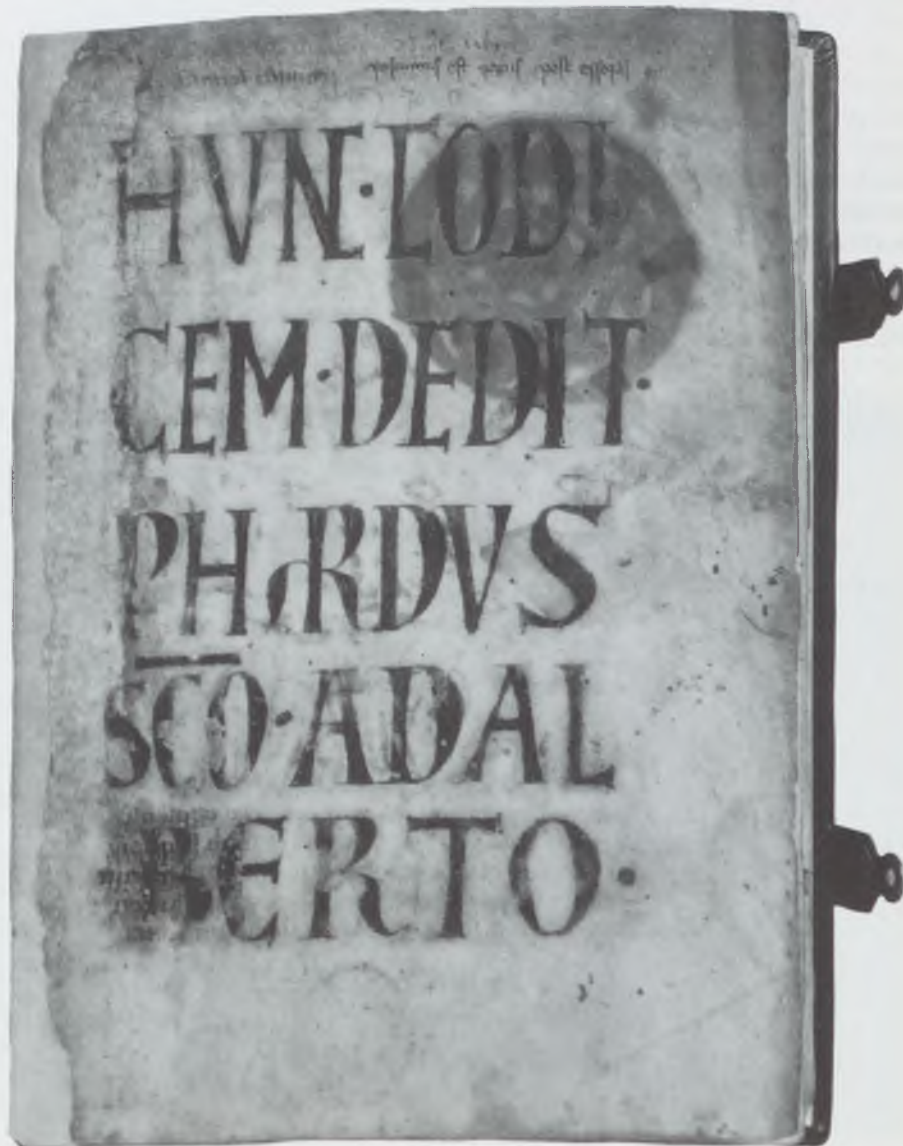 HVNC·CODI
CEM·DEDIT·
PHARDVS
SCO·ADAL
BERTO·